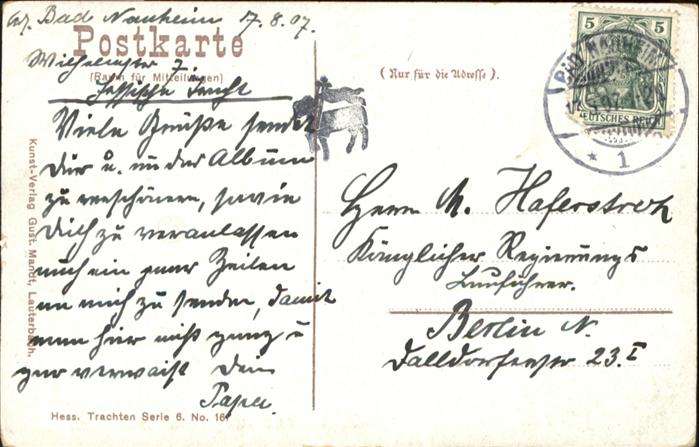 Bad Nauheim 17.8.07.
Postkarte
Wilhelmstr 7.
(Raum für Mitteilungen)
Hessische Tracht
Viele Grüße sendet
Dir u. um das Album
zu verschönern, sowie
Dich zu veranlassen
auch ein paar Zeilen
an mich zu senden, damit
man hier nicht ganz u
gar verwaist Dein
Papa.
Hess. Trachten Serie 6. No. 16
Kunst-Verlag Gust. Mandt, Lauterbach.
(Nur für die Adresse).
5 5
DEUTSCHES REICH
BAD NAUHEIM
* 1
Herrn M. Haferstroh
Königlicher Regierungs
Bauführer.
Berlin N.
Dalldorferstr 23.I